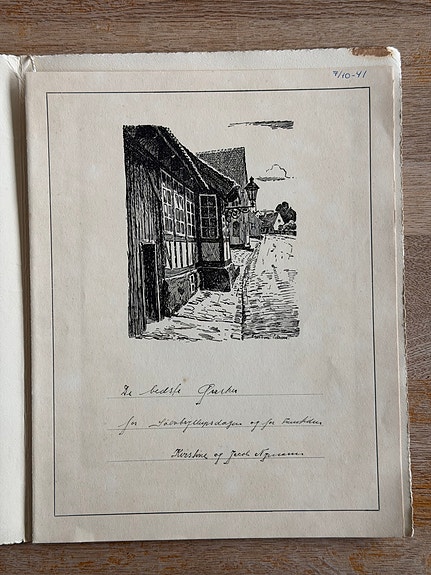 7/10-41
De bedste Ønsker
for Sølvbryllupsdagen og for Fremtiden
Kirstine og Jacob